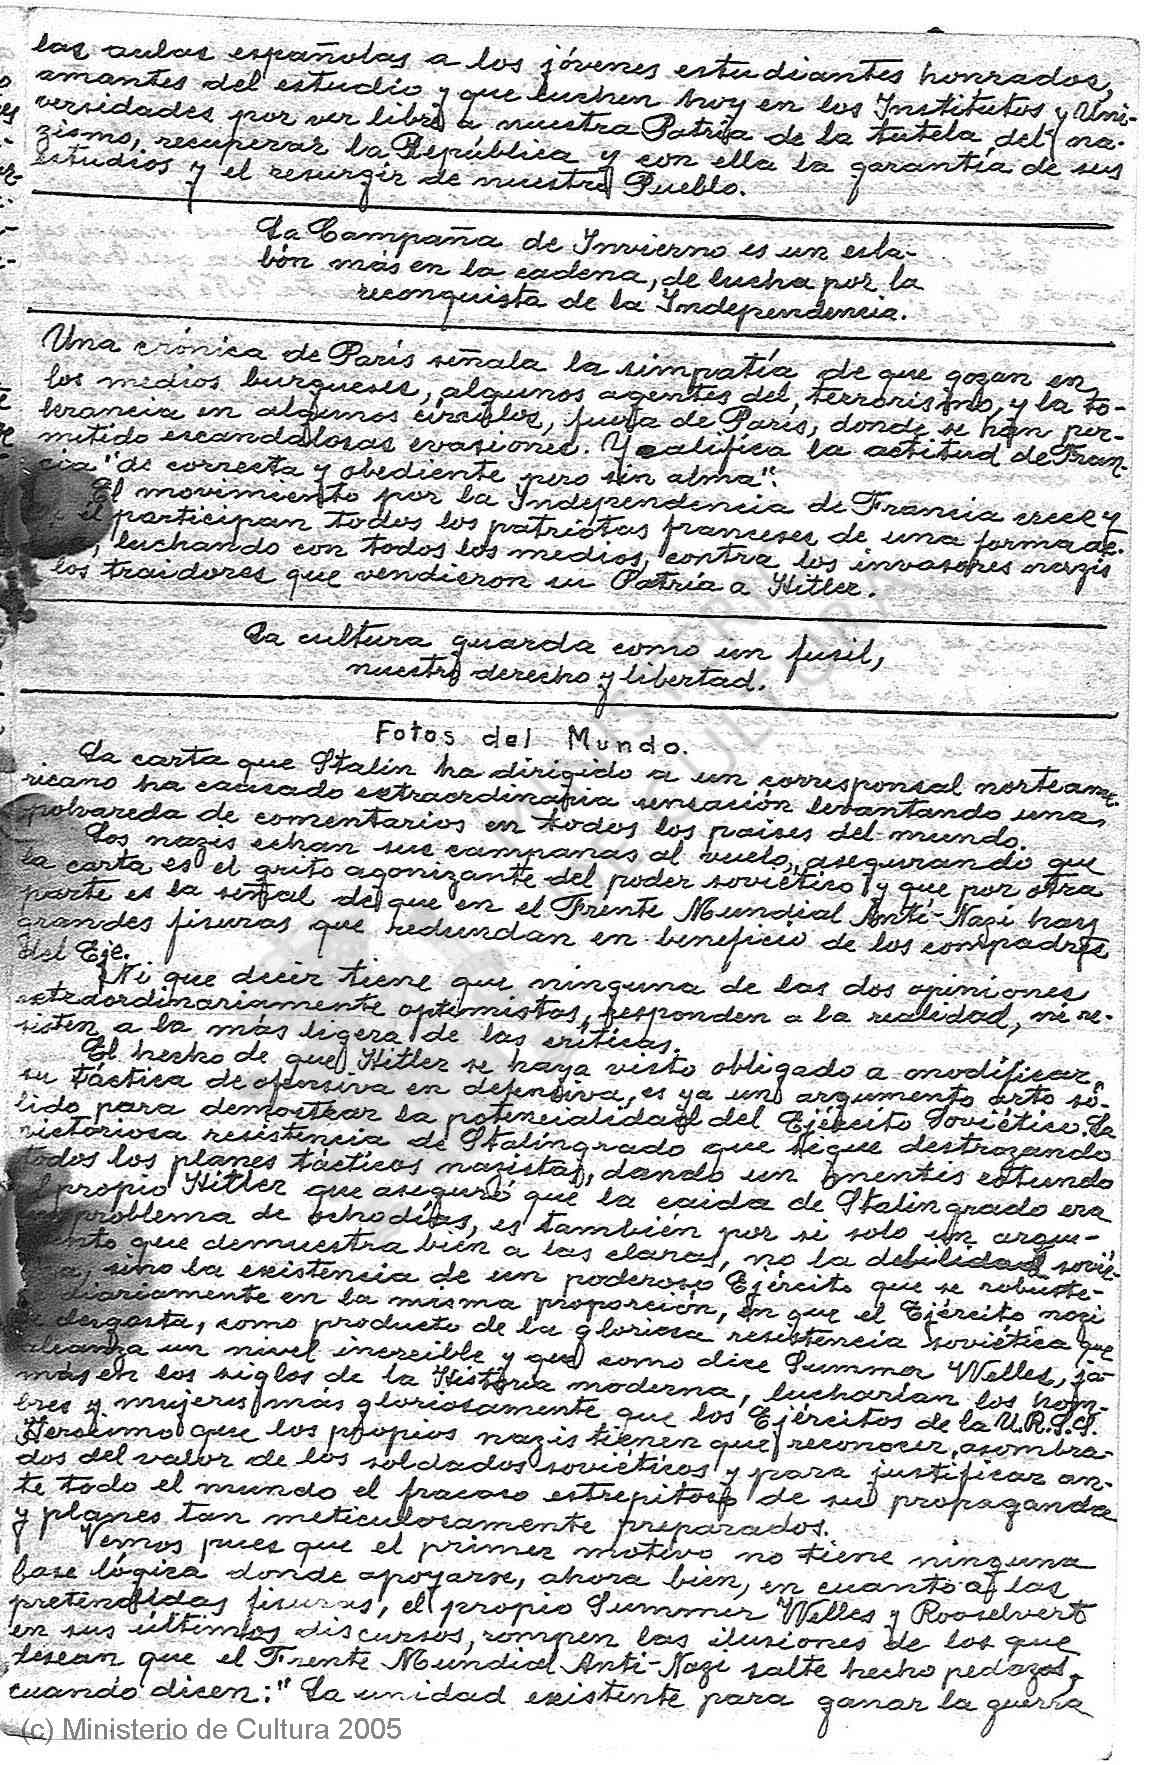 las aulas españolas a los jóvenes estudiantes honrados,
amantes del estudio y que luchen hoy en los Institutos y Uni-
versidades por ver libre a nuestra Patria de la tutela del na-
zismo, recuperar la República y con ella la garantía de sus
estudios y el resurgir de nuestro Pueblo.
La Campaña de Invierno es un esla-
bón más en la cadena, de lucha por la
reconquista de la Independencia.
Una crónica de París señala la simpatía de que gozan en
los medios burgueses, algunos agentes del terrorismo, y la to-
lerancia en algunos círculos, fuera de París, donde se han per-
mitido escandalosas evasiones. Y califica la actitud de Fran-
cia "de correcta y obediente pero sin alma".
El movimiento por la Independencia de Francia crece y
él participan todos los patriotas franceses de una forma ac-
luchando con todos los medios, contra los invasores nazis
los traidores que vendieron su Patria a Hitler.
La cultura guarda como un fusil,
nuestro derecho y libertad.
Fotos del Mundo.
La carta que Stalin ha dirigido a un corresponsal norteame-
ricano ha causado extraordinaria sensación levantando una
polvareda de comentarios en todos los paises del mundo.
Los nazis echan sus campanas al vuelo, asegurando que
la carta es el grito agonizante del poder soviético y que por otra
parte es la señal de que en el Frente Mundial Anti-Nazi hay
grandes fisuras que redundan en beneficio de los compadres
del Eje.
Ni que decir tiene que ninguna de las dos opiniones
extraordinariamente optimistas, responden a la realidad, ni re-
sisten a la más ligera de las críticas.
El hecho de que Hitler se haya visto obligado a modificar
su táctica de ofensiva en defensiva, es ya un argumento arto só-
lido para demostrar la potencialidad del Ejército Soviético. La
victoriosa resistencia de Stalingrado que sigue destrozando
todos los planes tácticos nazistas, dando un mentis rotundo
al propio Hitler que aseguró que la caida de Stalingrado era
problema de ocho días, es también por si solo un argu-
mento que demuestra bien a las claras, no la debilidad sovié-
sino la existencia de un poderoso Ejército que se robuste-
ce diariamente en la misma proporción, en que el Ejército nazi
se desgasta, como producto de la gloriosa resistencia soviética que
alcanza un nivel increible y que como dice Summer Welles, ja-
más en los siglos de la Historia moderna, lucharían los hom-
bres y mujeres más gloriosamente que los Ejércitos de la U.R.S.S.
Heroismo que los propios nazis tienen que reconocer, asombra-
dos del valor de los soldados soviéticos y para justificar an-
te todo el mundo el fracaso estrepitoso de su propaganda
y planes tan meticulosamente preparados.
Vemos pues que el primer motivo no tiene ninguna
base lógica donde apoyarse, ahora bien, en cuanto a las
pretendidas fisuras, el propio Summer Welles y Rooselvert
en sus últimos discursos, rompen las ilusiones de los que
desean que el Frente Mundial Anti-Nazi salte hecho pedazos,
cuando dicen: "La unidad existente para ganar la guerra
(c) Ministerio de Cultura 2005